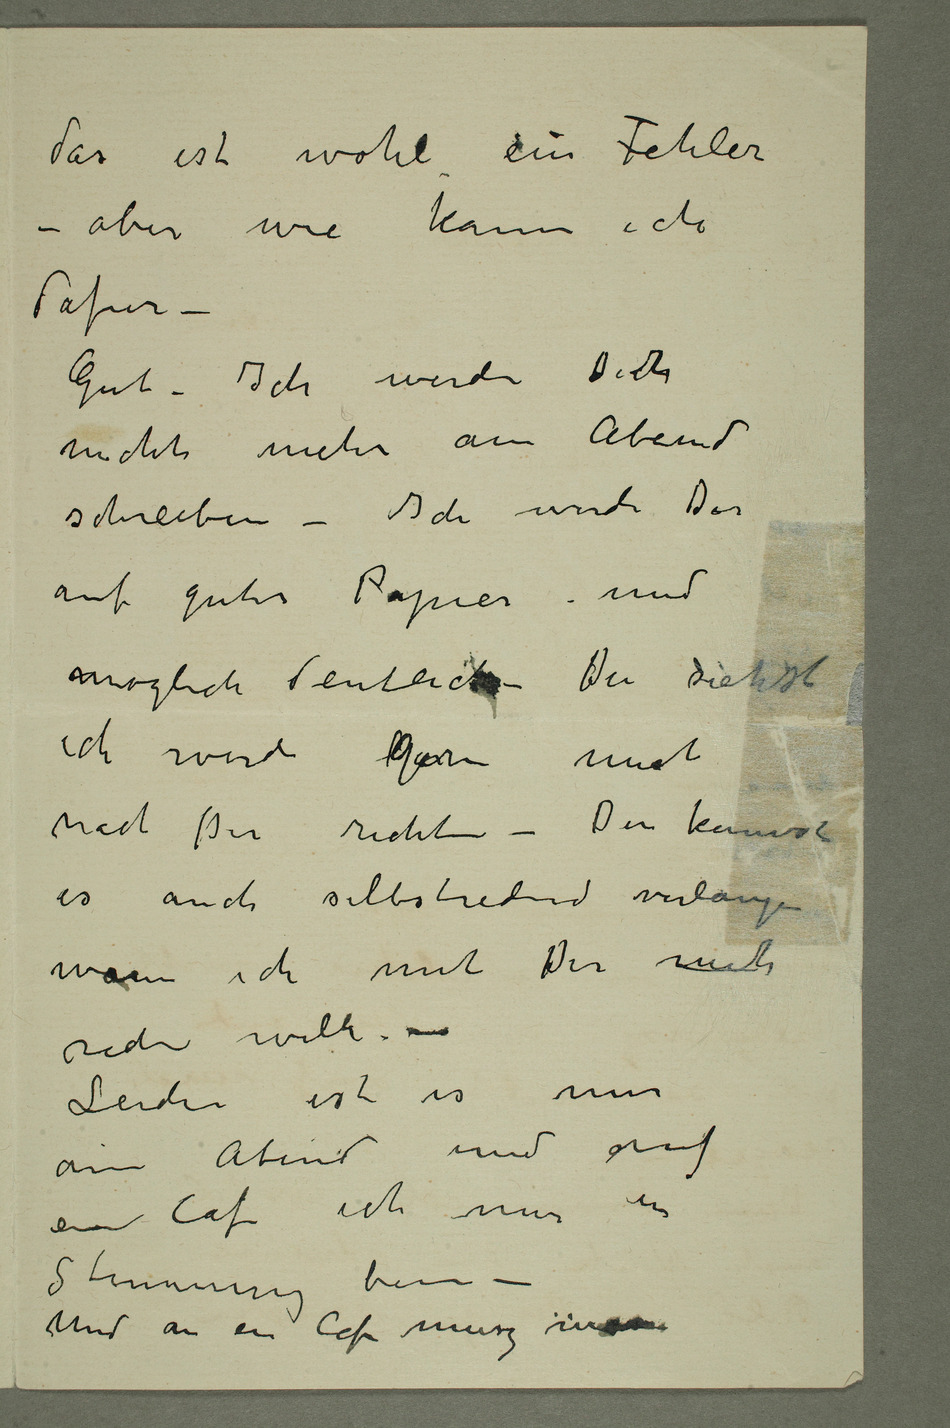 das ist wohl ein Fehler
– aber wie kann ich
dafür –
Gut – Ich werde Dich
nicht mehr am Abend
schreiben – Ich werde Dir
auf gutes Papier – und
möglich deutlich – Du siehst
ich werde gern mich
nach Dir richten – Du kannst
es auch selbstredend verlangen
wann ich mit Dir mich
reden will. –
Leider ist es nur
am Abend und auf
ein Cafe ich nur in
Stimmung bin –
Und an ein Cafe musz